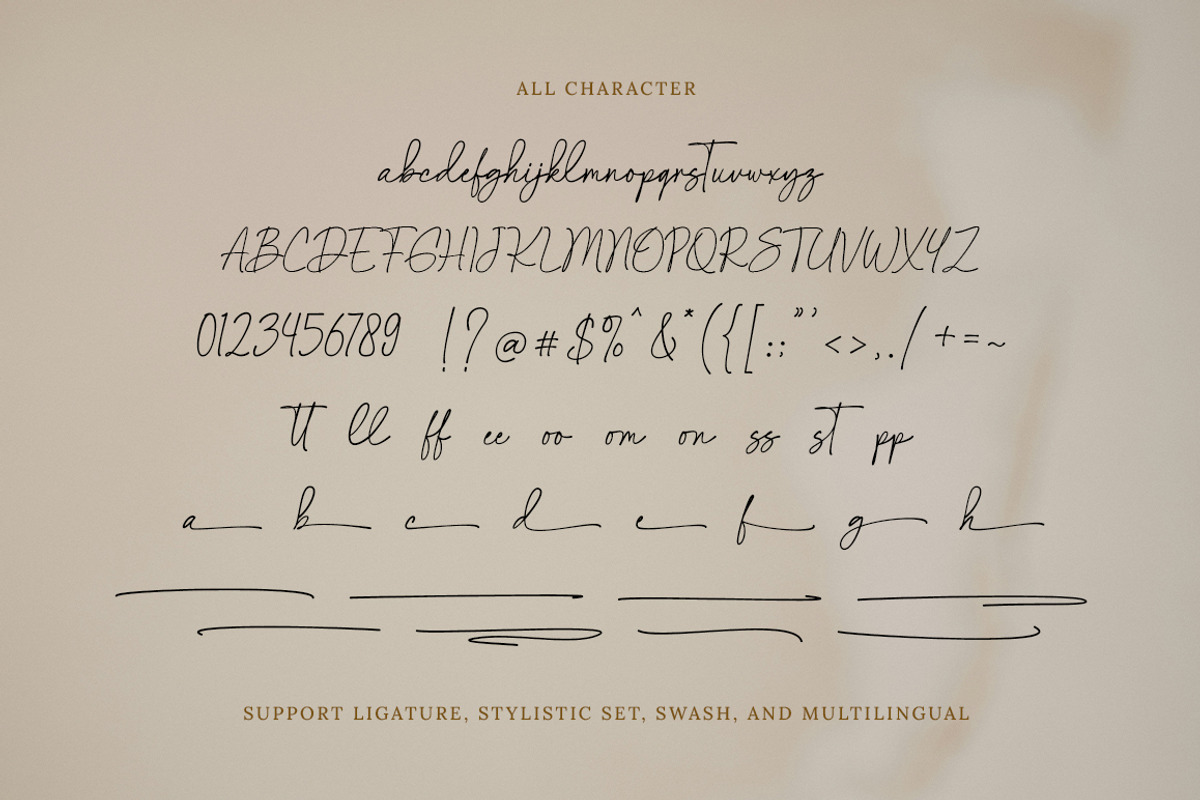 ALL CHARACTER
abcdefghijklmnopqrstuvwxyz
ABCDEFGHIJKLMNOPQRSTUVWXYZ
0123456789 !?@#$%^&*({[:;”’<>,./+=~
tt ll ff ee oo om on ss st pp
a b c d e f g h
SUPPORT LIGATURE, STYLISTIC SET, SWASH, AND MULTILINGUAL